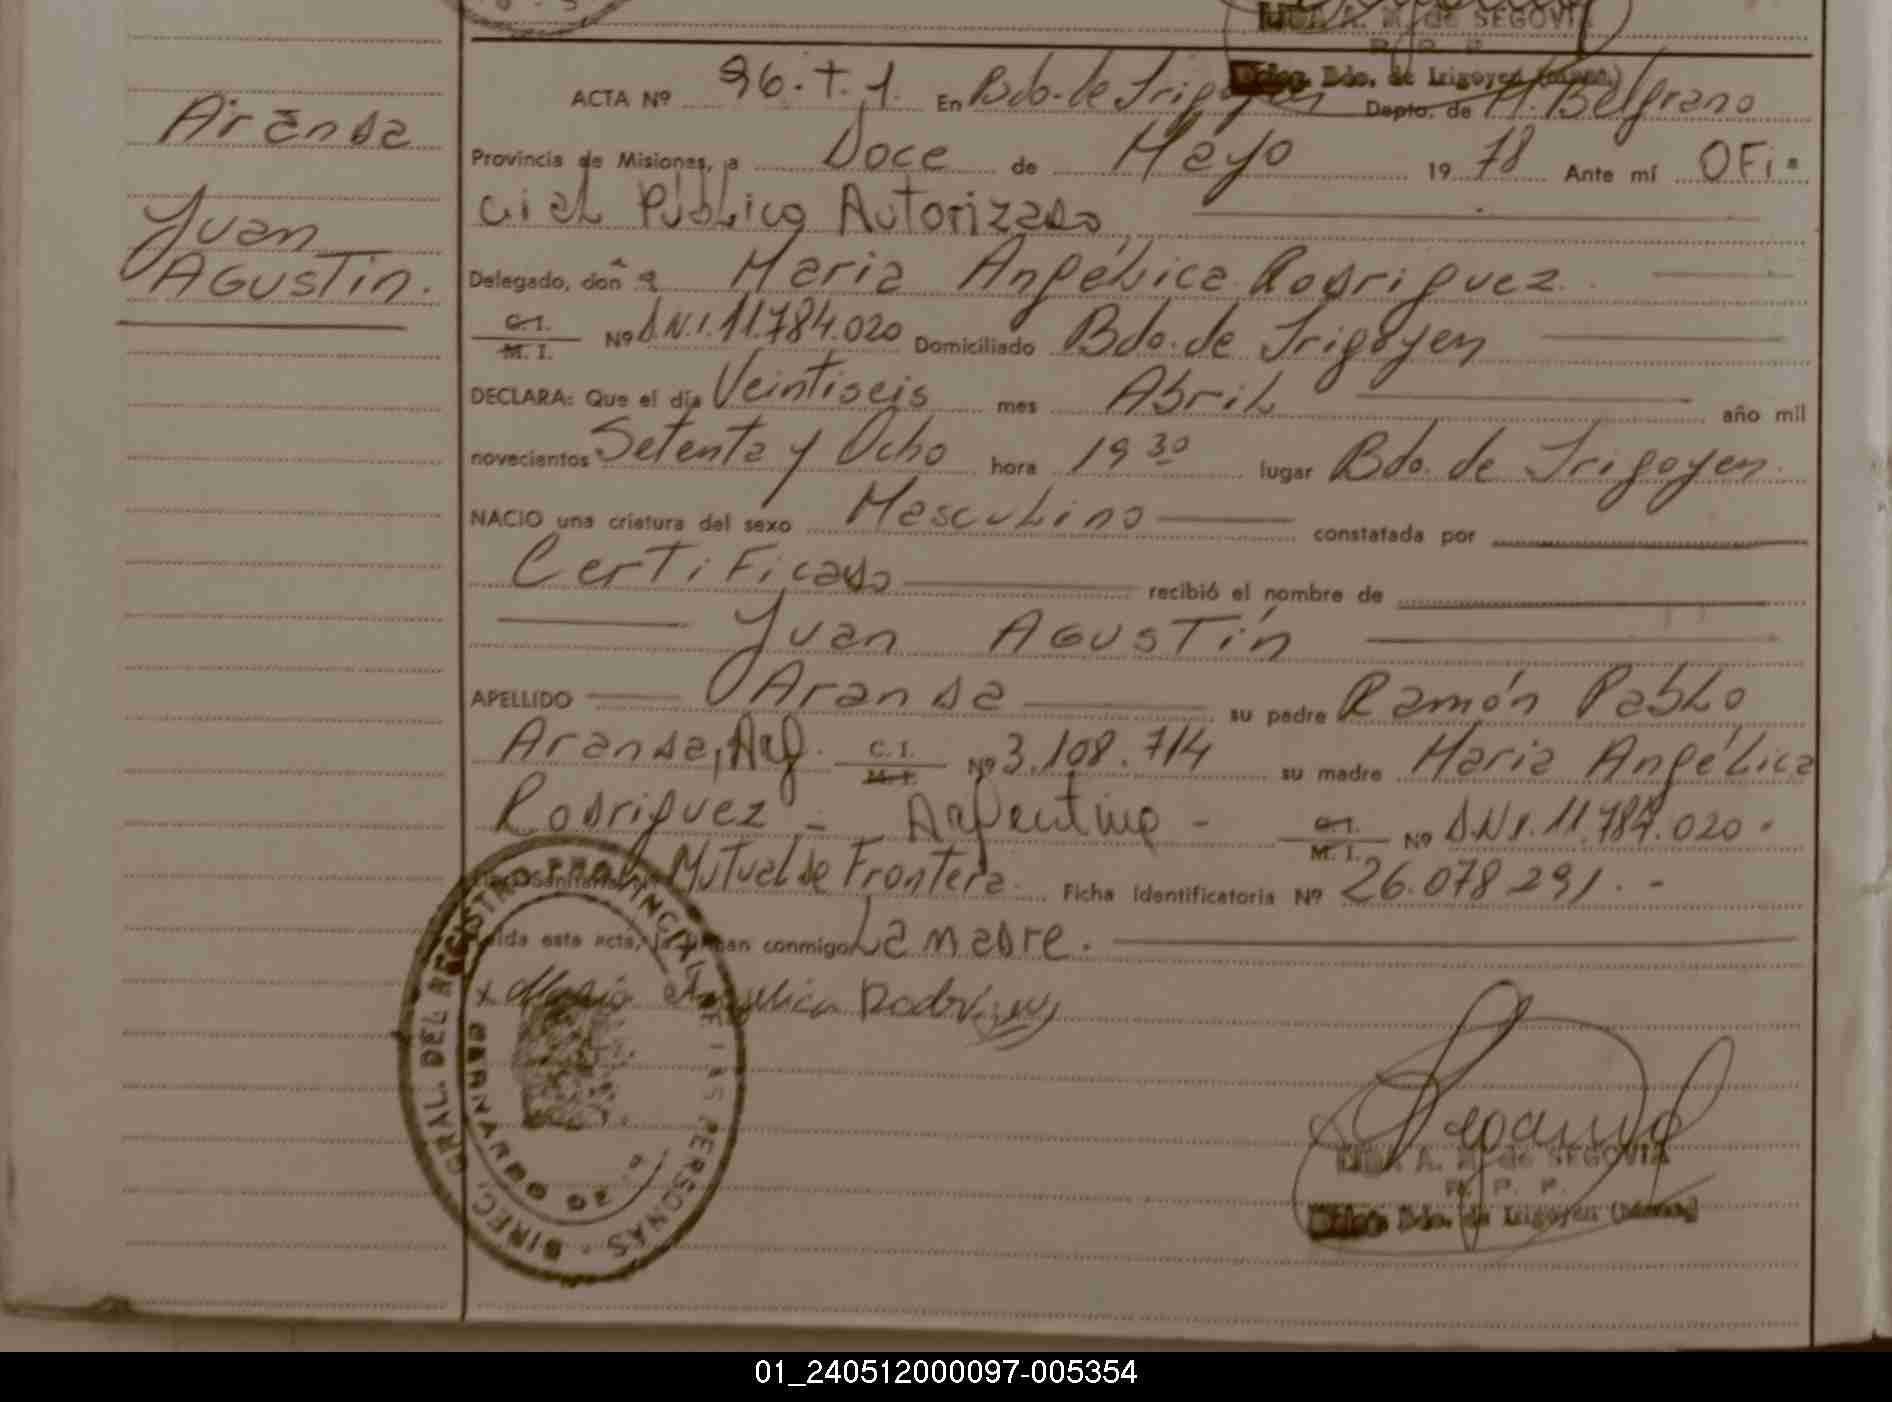 LIDA A. M. de SEGOVIA
R. P. P.
Deleg. Bdo. de Irigoyen (Mnes.)
Aranda
Juan
AGUSTín.
ACTA Nº 96.T.1. En Bdo. de Irigoyen Depto. de M. Belgrano
Provincia de Misiones, a Doce de Mayo 1978 Ante mí OFi-
cial Público Autorizado
Delegado, doña Maria Angélica Rodriguez
C. I.
M. I. Nº D.N.I. 11.784.020 Domiciliado Bdo. de Irigoyen
DECLARA: Que el día Veintiseis mes Abril año mil
novecientos Setenta y Ocho hora 19 30 lugar Bdo. de Irigoyen.
NACIO una criatura del sexo Masculino constatada por
Certificado recibió el nombre de
Juan AGUSTín
APELLIDO Aranda su padre Ramón Pablo
Aranda, Arg. C. I.
M. I. Nº 3.108.714 su madre Maria Angélica
Rodriguez - Argentina - C. I.
M. I. Nº D.N.I. 11.784.020.
Mutual de Frontera Ficha identificatoria Nº 26.078.291.-
esta acta, la firman conmigo La madre.
x Maria Angelica Rodriguez
DIREC. GRAL. DEL REGISTRO PROVINCIAL DE LAS PERSONAS
Segovia
LIDA A. M. de SEGOVIA
R. P. P.
Bdo. de Irigoyen (Misiones)
01_240512000097-005354